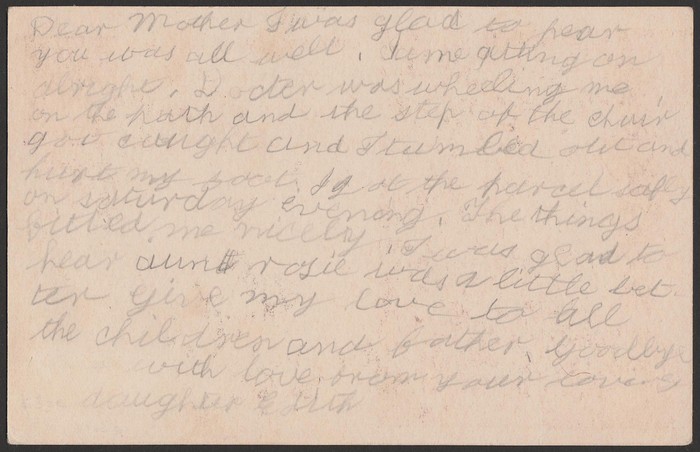 Dear Mother I was glad to hear
you was all well. I am getting on
alright. Docter was wheeling me
on the path and the step of the chair
got caught and I tumbled out and
hurt my foot. I got the parcel safly
on saturday evening. The things
fitted me nicely. I was glad to
hear aunt rosie was a little bet-
ter Give my love to all
the children and father. Goodbye
with love from your loveing
daughter Edith